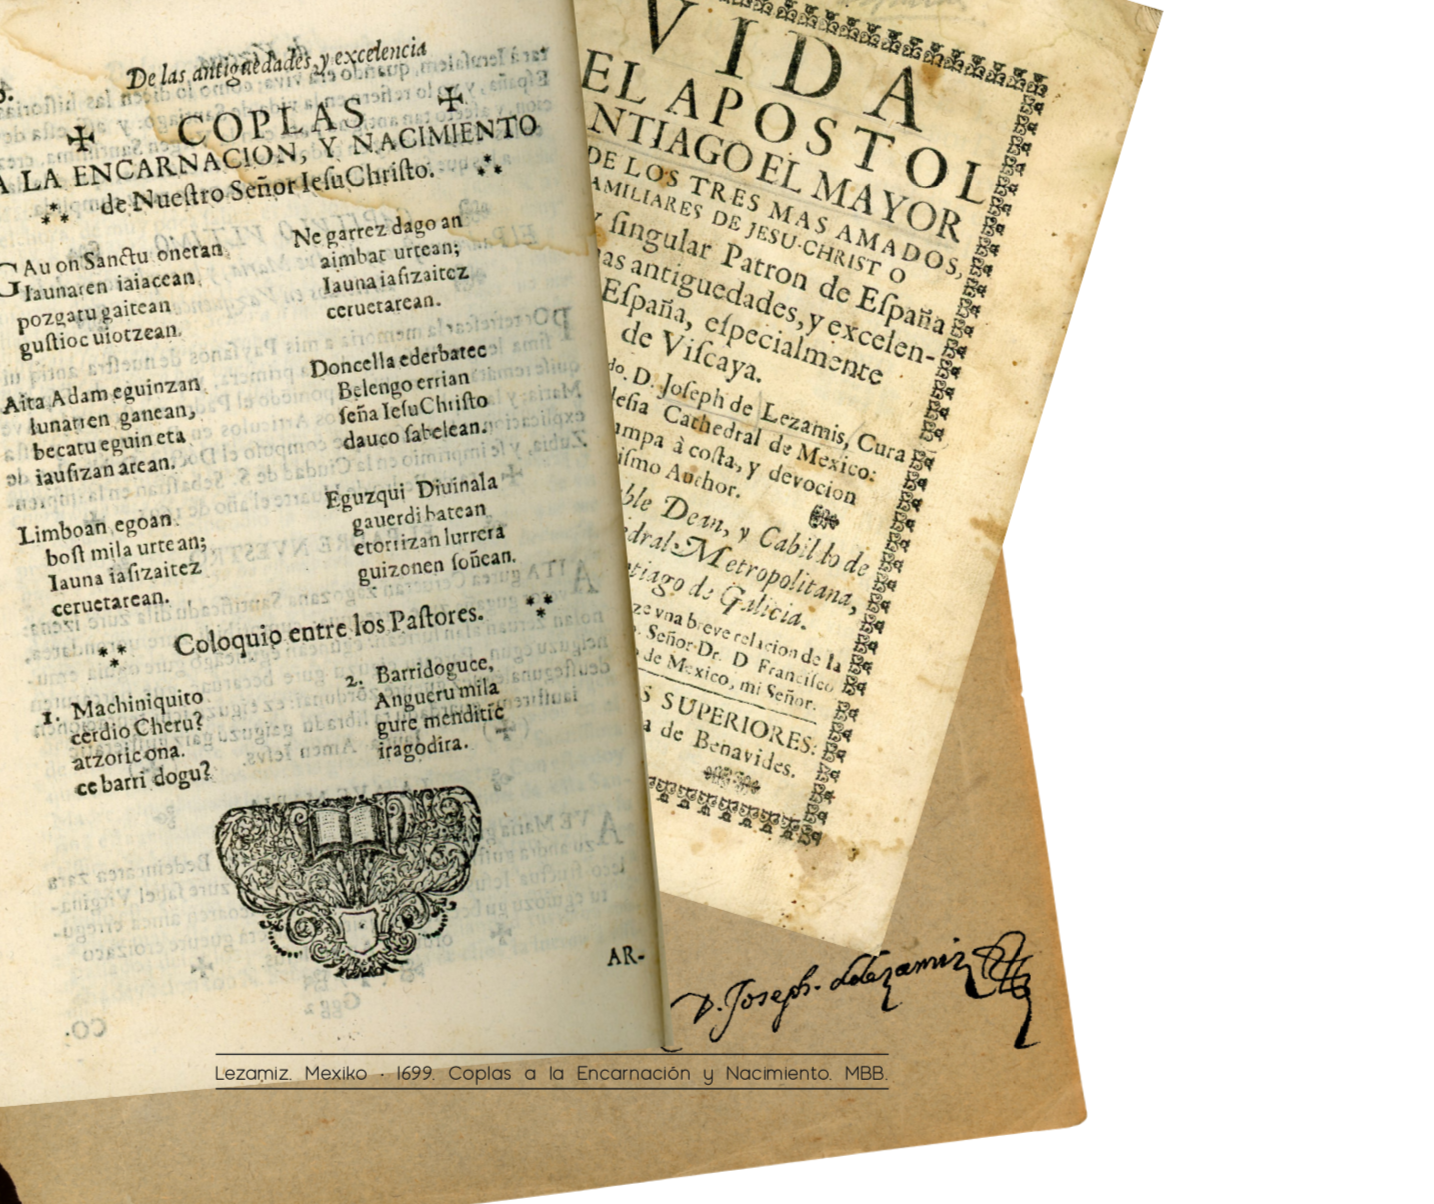 De las antiguedades, y excelencia
COPLAS
A LA ENCARNACION, Y NACIMIENTO
de Nueſtro Señor IeſuChriſto.
GAu on Sanctu onetan
Iaunaren iaiacean
pozgatu gaitean
guſtioc uiotzean.
Aita Adam eguinzan
lunarren ganean,
becatu eguin eta
iauſizan atean.
Limboan egoan
boſt mila urtean;
Iauna iaſizaitez
ceruetarean.
Ne garrez dago an
aimbat urtean;
Iauna iaſizaitez
ceruetarean.
Doncella ederbatec
Belengo errian
ſeña IeſuChriſto
dauco ſabelean.
Eguzqui Diuinala
gauerdi batean
etorrizan lurrera
guizonen ſoñean.
Coloquio entre los Paſtores.
1. Machiniquito
cerdio Cheru?
atzoric ona.
ce barri dogu?
2. Barridoguce,
Angueru mila
gure menditic
iragodira.
AR-
VIDA
EL APOSTOL
NTIAGO EL MAYOR
DE LOS TRES MAS AMADOS,
AMILIARES DE JESU-CHRISTO
y ſingular Patron de Eſpaña
as antiguedades, y excelen-
Eſpaña, eſpecialmente
de Viſcaya.
do. D. Joſeph de Lezamis, Cura
leſia Cathedral de Mexico:
ampa à coſta, y devocion
iſmo Author.
ble Dean, y Cabildo de
edral Metropolitana,
tiago de Galicia.
ze vna breve relacion de la
Señor Dr. D Franciſco
de Mexico, mi Señor.
S SUPERIORES:
a de Benavides.
D. Joseph de Lezamiz
Lezamiz. Mexiko · 1699. Coplas a la Encarnación y Nacimiento. MBB.